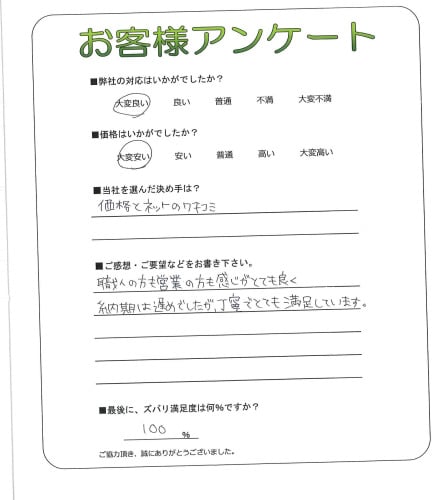 お客様アンケート
■弊社の対応はいかがでしたか？
大変良い 良い 普通 不満 大変不満
■価格はいかがでしたか？
大変安い 安い 普通 高い 大変高い
■当社を選んだ決め手は？
価格とネットのクチコミ
■ご感想・ご要望などをお書き下さい。
職人の方も営業の方も感じがとても良く
納期は遅めでしたが、丁寧でとても満足しています。
■最後に、ズバリ満足度は何％ですか？
100 ％
ご協力頂き、誠にありがとうございました。